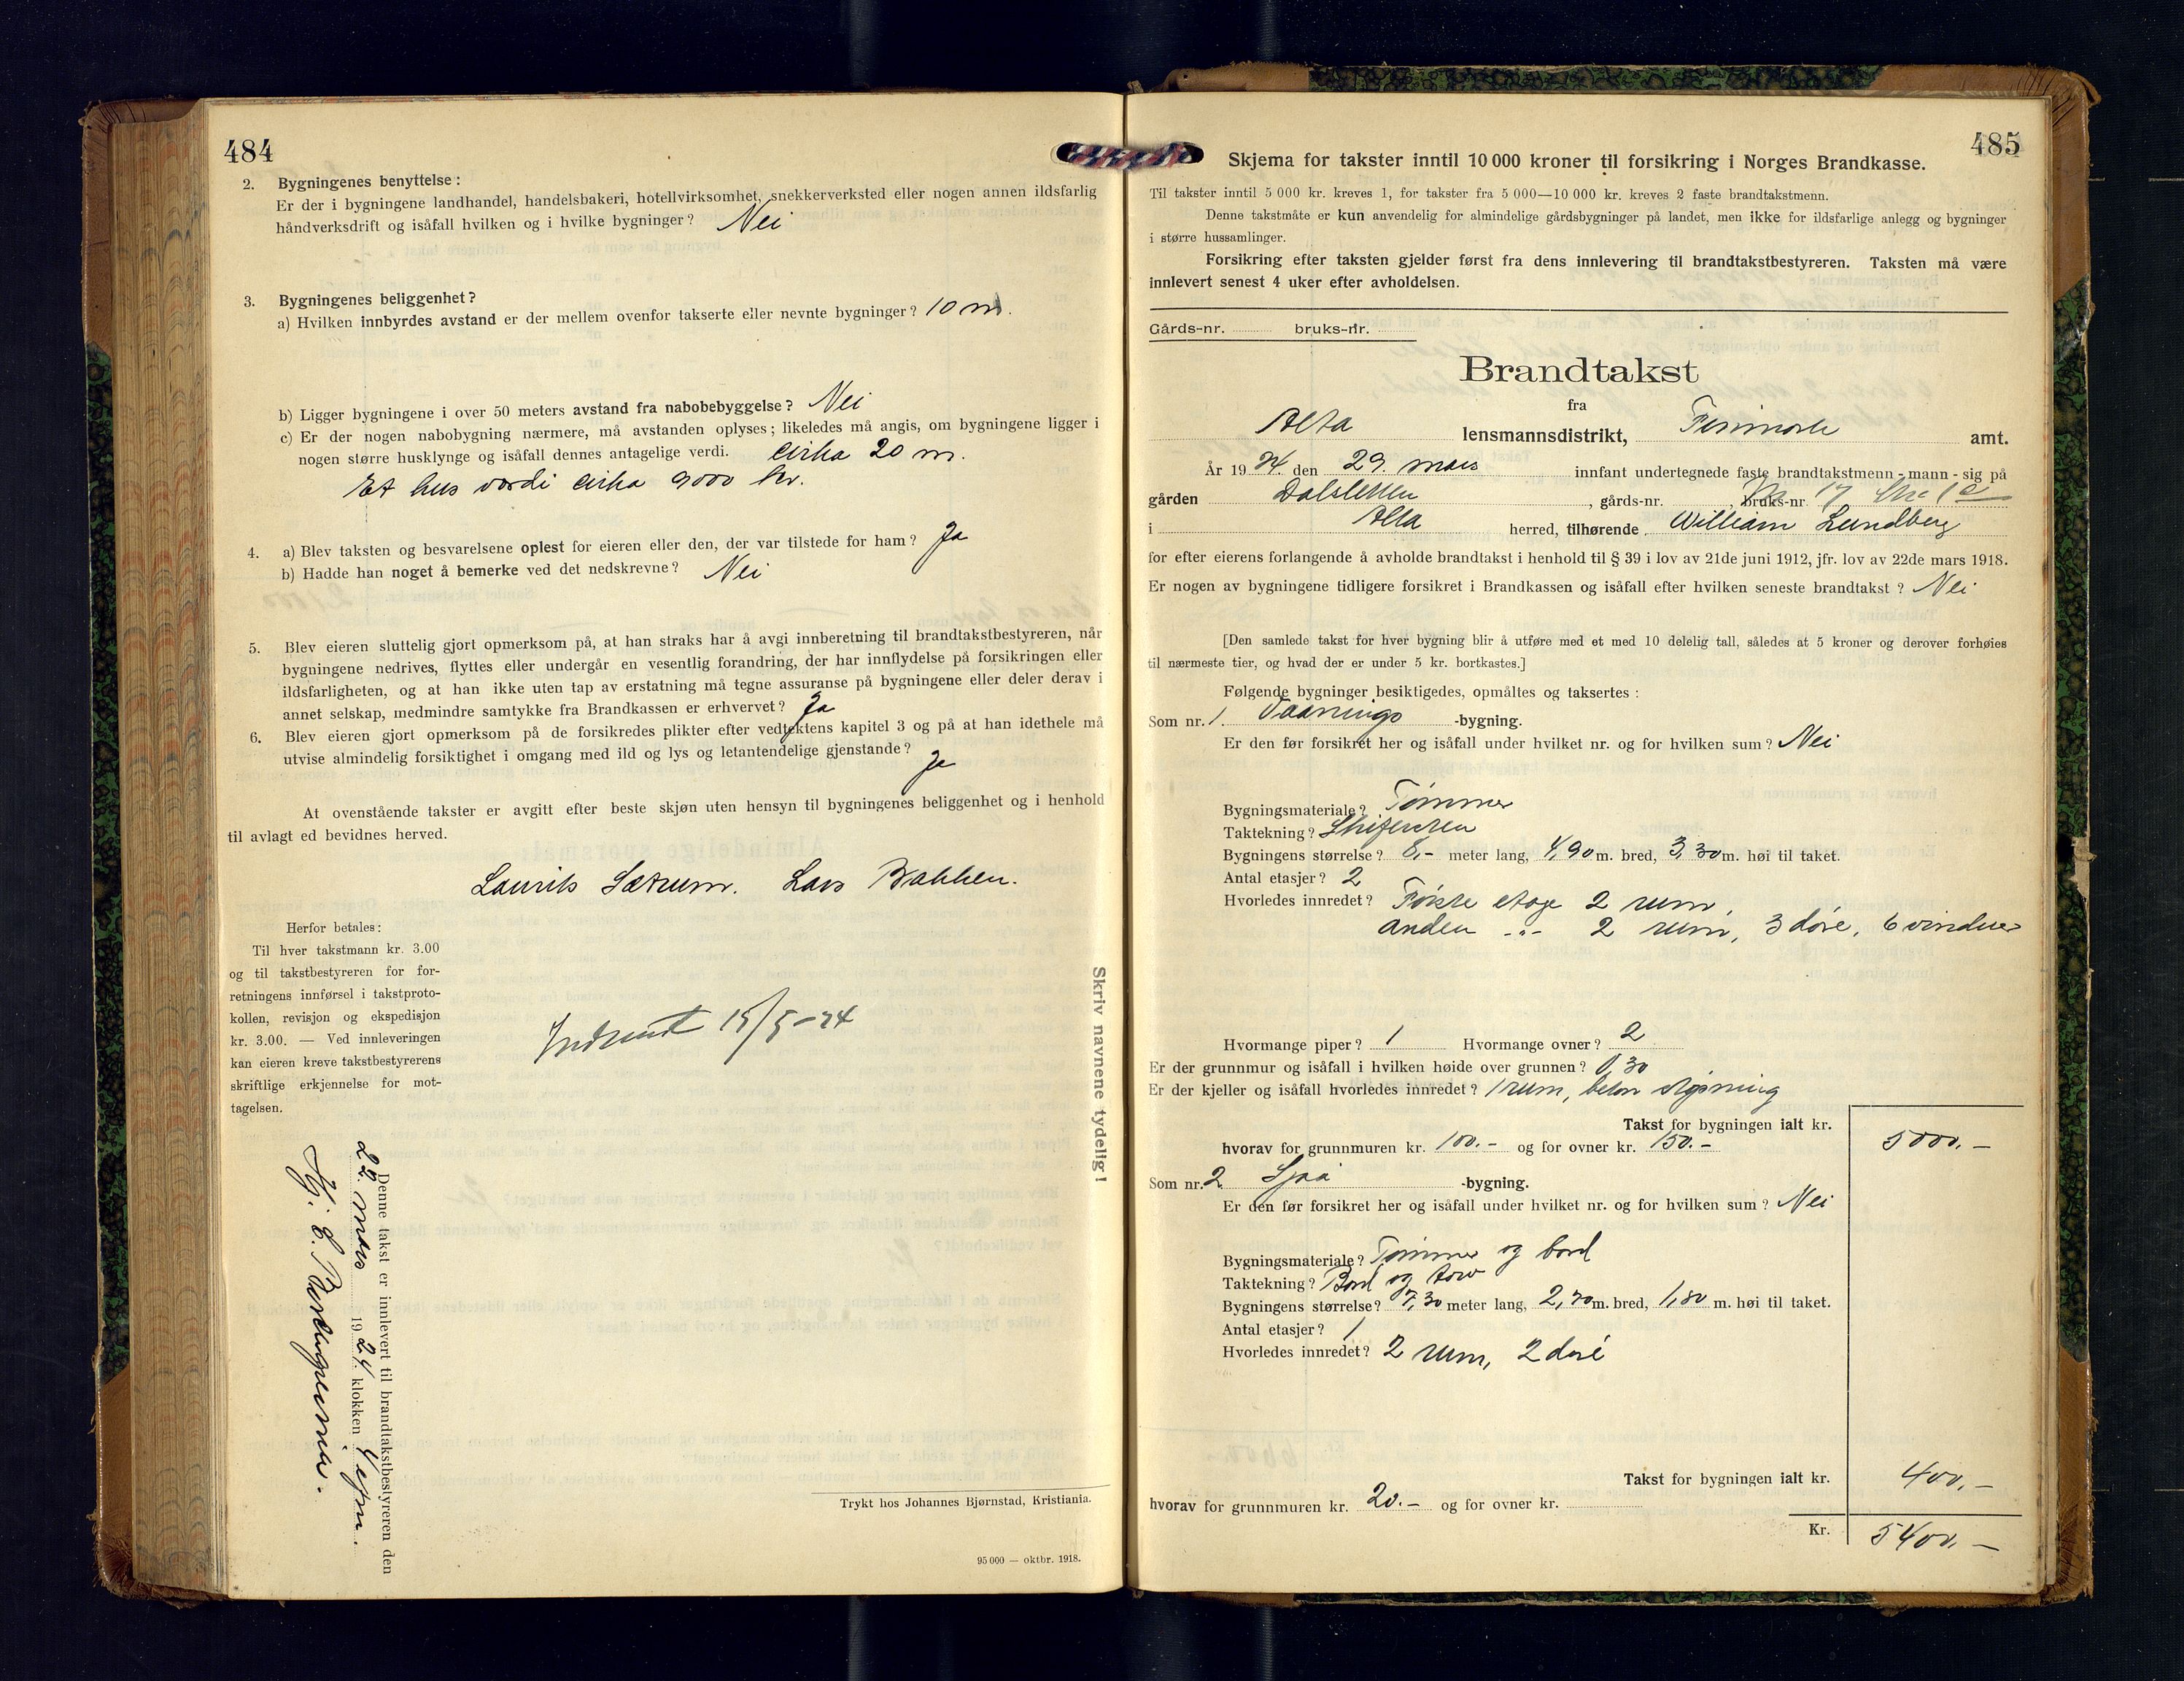 484
2. Bygningenes benyttelse:
Er der i bygningene landhandel, handelsbakeri, hotellvirksomhet, snekkerverksted eller nogen annen ildsfarlig
håndverksdrift og isåfall hvilken og i hvilke bygninger? Nei
3. Bygningenes beliggenhet?
a) Hvilken innbyrdes avstand er der mellem ovenfor takserte eller nevnte bygninger? 10 m.
b) Ligger bygningene i over 50 meters avstand fra nabobebyggelse? Nei
c) Er der nogen nabobygning nærmere, må avstanden oplyses; likeledes må angis, om bygningene ligger i
nogen større husklynge og isåfall dennes antagelige verdi. cirka 20 m.
Et hus værdi cirka 9000 kr.
4. a) Blev taksten og besvarelsene oplest for eieren eller den, der var tilstede for ham? Ja
b) Hadde han noget å bemerke ved det nedskrevne? Nei
5. Blev eieren sluttelig gjort opmerksom på, at han straks har å avgi innberetning til brandtakstbestyreren, når
bygningene nedrives, flyttes eller undergår en vesentlig forandring, der har innflydelse på forsikringen eller
ildsfarligheten, og at han ikke uten tap av erstatning må tegne assuranse på bygningene eller deler derav i
annet selskap, medmindre samtykke fra Brandkassen er erhvervet? Ja
6. Blev eieren gjort opmerksom på de forsikredes plikter efter vedtektens kapitel 3 og på at han idethele må
utvise almindelig forsiktighet i omgang med ild og lys og letantendelige gjenstande? Ja
At ovenstående takster er avgitt efter beste skjøn uten hensyn til bygningenes beliggenhet og i henhold
til avlagt ed bevidnes herved.
Laurits Sætrum. Lars Bakken.
Herfor betales:
Til hver takstmann kr. 3.00
og til takstbestyreren for for-
retningens innførsel i takstproto-
kollen, revisjon og ekspedisjon
kr. 3.00. — Ved innleveringen
kan eieren kreve takstbestyrerens
skriftlige erkjennelse for mot-
tagelsen.
Indsendt 15/5-24
Skriv navnene tydelig!
Denne takst er innlevert til brandtakstbestyreren den
22 mars 1924 klokken 4 efm.
Hj. E.
Trykt hos Johannes Bjørnstad, Kristiania.
95 000 — oktbr. 1918.
485
Skjema for takster inntil 10 000 kroner til forsikring i Norges Brandkasse.
Til takster inntil 5 000 kr. kreves 1, for takster fra 5 000—10 000 kr. kreves 2 faste brandtakstmenn.
Denne takstmåte er kun anvendelig for almindelige gårdsbygninger på landet, men ikke for ildsfarlige anlegg og bygninger
i større hussamlinger.
Forsikring efter taksten gjelder først fra dens innlevering til brandtakstbestyreren. Taksten må være
innlevert senest 4 uker efter avholdelsen.
Gårds-nr. bruks-nr.
Brandtakst
fra
Alta lensmannsdistrikt, Finmark amt.
År 1924 den 29 mars innfant undertegnede faste brandtakstmenn - mann - sig på
gården Dalsletten, gårds-nr. , bruks-nr. 17
i Alta herred, tilhørende William Lundberg
for efter eierens forlangende å avholde brandtakst i henhold til § 39 i lov av 21de juni 1912, jfr. lov av 22de mars 1918.
Er nogen av bygningene tidligere forsikret i Brandkassen og isåfall efter hvilken seneste brandtakst? Nei
[Den samlede takst for hver bygning blir å utføre med et med 10 delelig tall, således at 5 kroner og derover forhøies
til nærmeste tier, og hvad der er under 5 kr. bortkastes.]
Følgende bygninger besiktigedes, opmåltes og taksertes:
Som nr. 1. Vaanings -bygning.
Er den før forsikret her og isåfall under hvilket nr. og for hvilken sum? Nei
Bygningsmateriale? Tømmer
Taktekning? Skifersten
Bygningens størrelse? 8,- meter lang, 4,90 m. bred, 3,30 m. høi til taket.
Antal etasjer? 2
Hvorledes innredet? Første etage 2 rum,
anden -"- 2 rum, 3 døre, 6 vinduer
Hvormange piper? 1 Hvormange ovner? 2
Er der grunnmur og isåfall i hvilken høide over grunnen? 0,30
Er der kjeller og isåfall hvorledes innredet? 1 rum, beton støpning
Takst for bygningen ialt kr. 5000.-
hvorav for grunnmuren kr. 100.- og for ovner kr. 150.-
Som nr. 2. Sjaa -bygning.
Er den før forsikret her og isåfall under hvilket nr. og for hvilken sum? Nei
Bygningsmateriale? Tømmer og bord
Taktekning? Bord og torv
Bygningens størrelse? 7,30 meter lang, 2,70 m. bred, 1,80 m. høi til taket.
Antal etasjer? 1
Hvorledes innredet? 2 rum, 2 døre
Takst for bygningen ialt kr. 400,-
hvorav for grunnmuren kr. 20.- og for ovner kr.
Kr. 5400,-